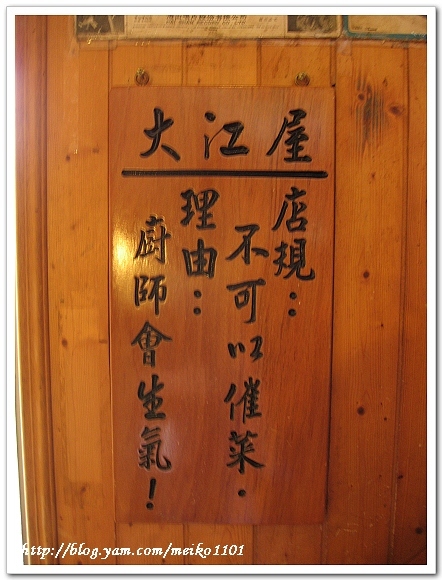 大江屋
店規：
不可以催菜．
理由：
廚師會生氣！
http://blog.yam.com/meiko1101